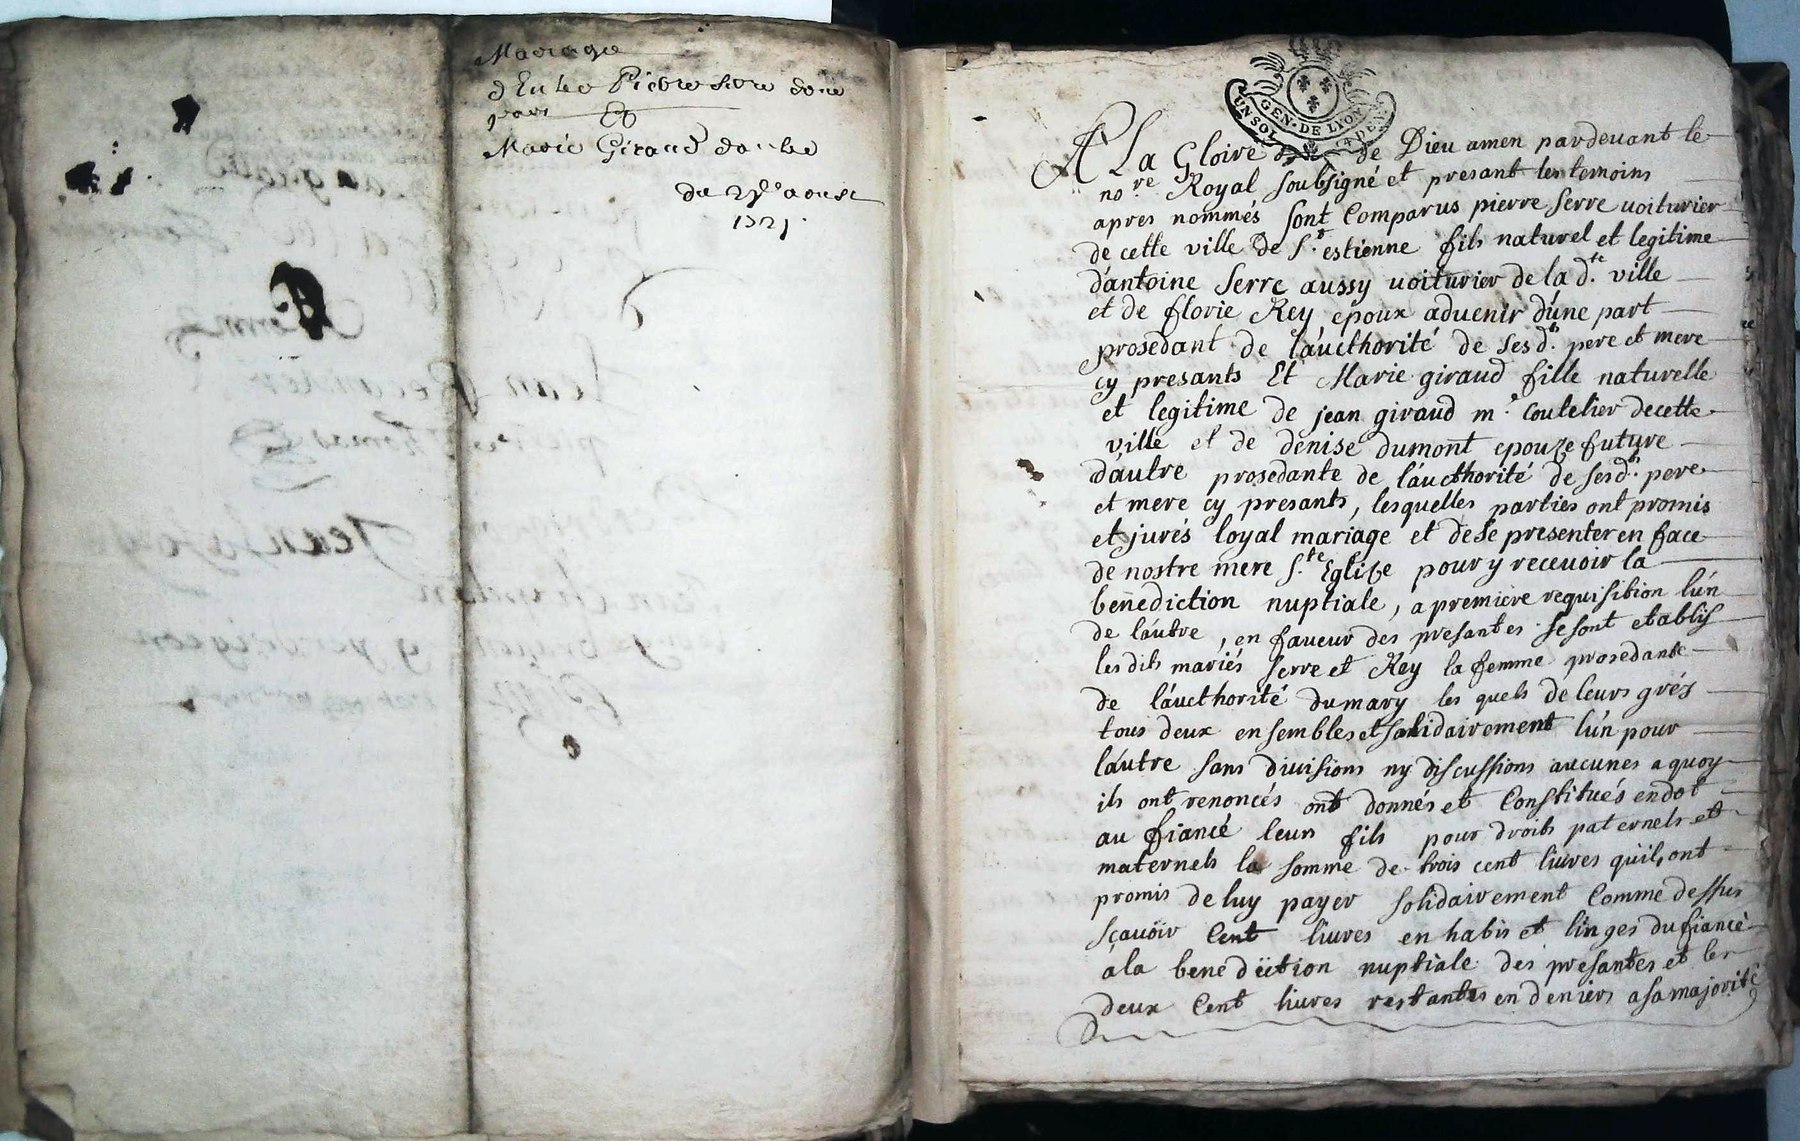 Mariage
d'Entre Pierre Serre d'une
part Et
Marie Giraud d'autre
du aoust
1721
GEN. DE LYON
UN SOL 4 DEN
A La Gloire de Dieu amen pardevant le
no.re Royal soubsigné et presant les temoins
apres nommés sont Comparus pierre serre uoiturier
de cette ville de S.t estienne fils naturel et legitime
d'antoine serre aussy uoiturier de la d.te ville
et de florie Rey epoux aduenir d'une part
prosedant de l'aucthorité de ses d.ts pere et mere
cy presants Et Marie giraud fille naturelle
et legitime de jean giraud m.e Coutelier de cette
ville et de denise dumont epouze future
d'autre prosedante de l'aucthorité de ses d.ts pere
et mere cy presants, lesquelles parties ont promis
et jurés loyal mariage et de se presenter en face
de nostre mere S.te Eglize pour y receuoir la
benediction nuptiale, a premiere requisition l'un
de l'autre, en faueur des presantes se sont etablis
les dits mariés serre et Rey la femme prosedante
de l'aucthorité du mary les quels de leurs grés
tous deux ensembles et solidairement l'un pour
l'autre sans diuisions ny discussions aucunes a quoy
ils ont renoncés ont donnés et Constitués en dot
au fiancé leur fils pour droits paternels et
maternels la somme de trois cent liures qu'ils ont
promis de luy payer solidairement Comme dessus
sçauoir Cent liures en habis et linges du fiancé
a la benediction nuptiale des presantes et les
deux Cent liures restantes en deniers a sa majorité